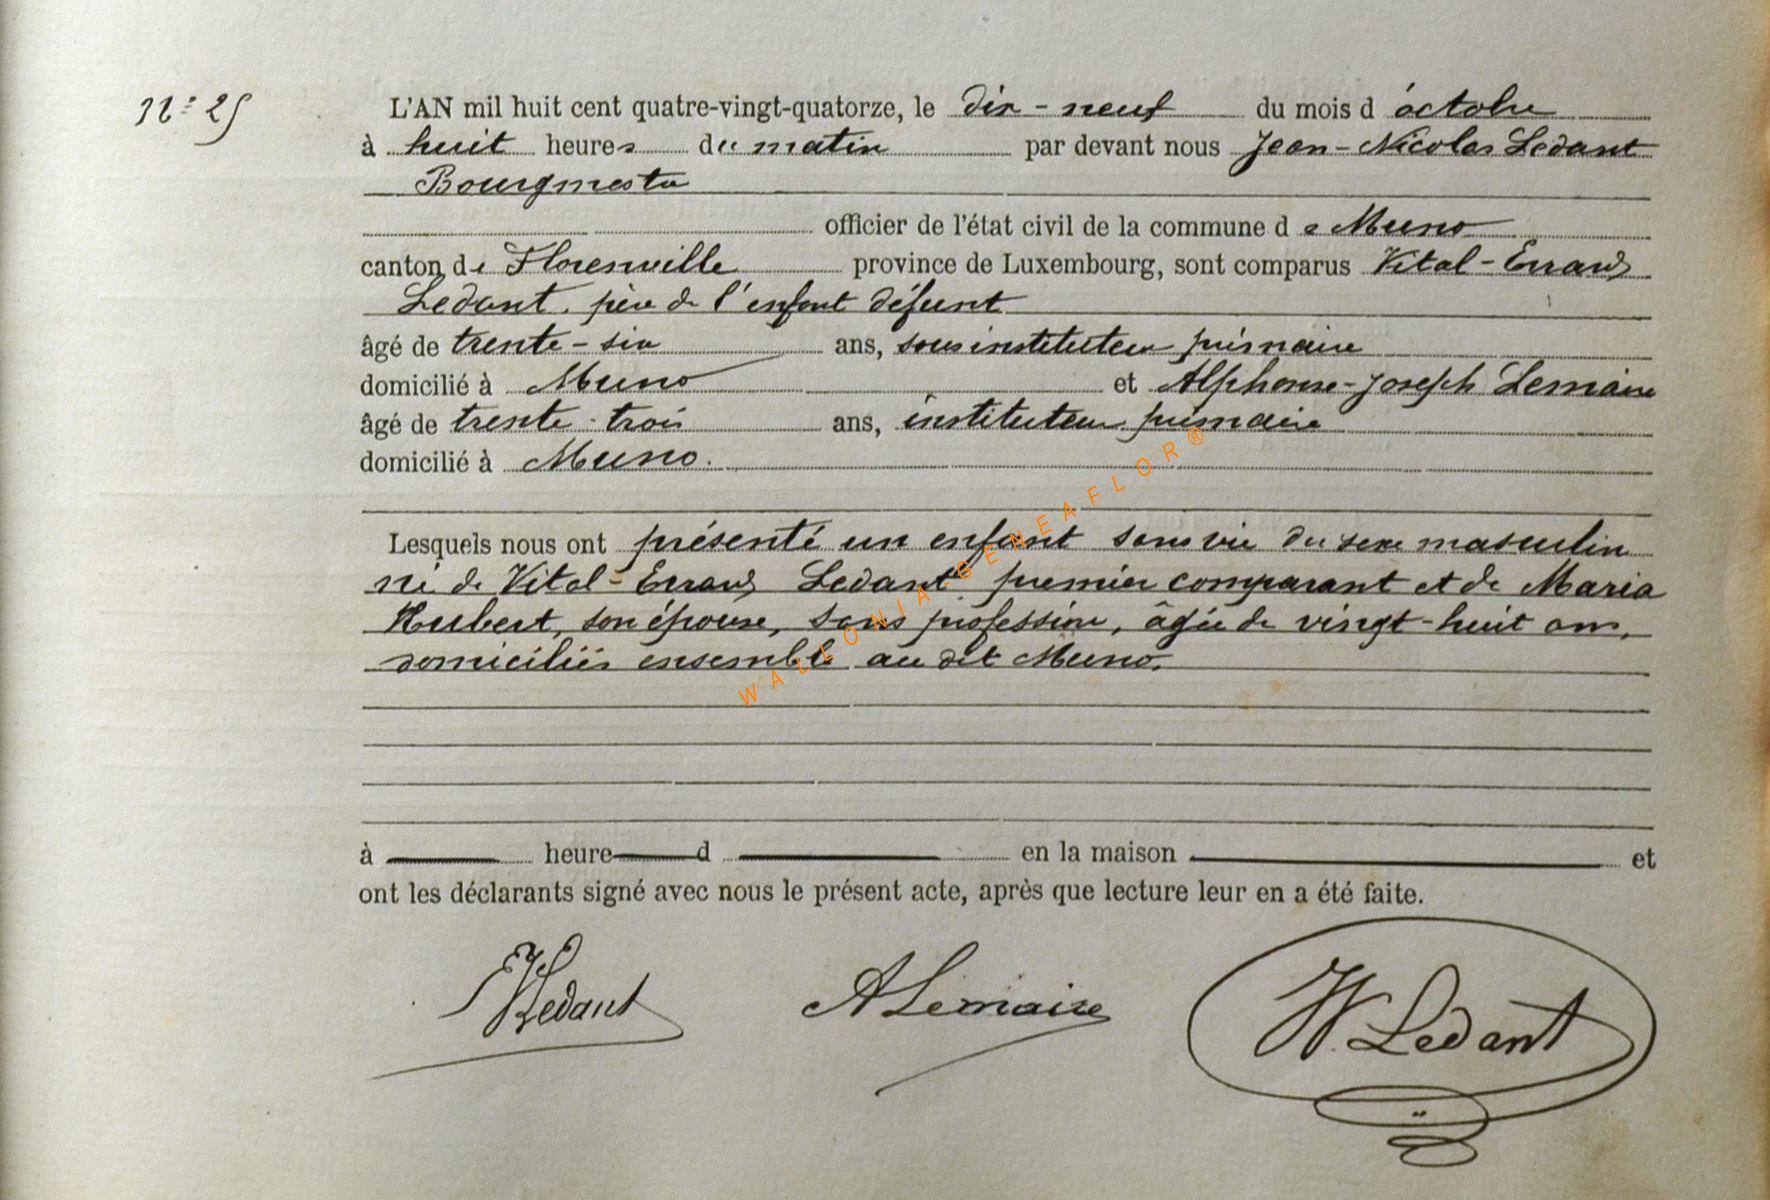 N° 25
L'AN mil huit cent quatre-vingt-quatorze, le dix-neuf du mois d'octobre
à huit heures du matin par devant nous Jean-Nicolas Ledant
Bourgmestre
officier de l'état civil de la commune de Muno
canton de Florenville province de Luxembourg, sont comparus Vital-Errard
Ledant, père de l'enfant défunt
âgé de trente-six ans, sous instituteur primaire
domicilié à Muno et Alphonse-Joseph Lemaire
âgé de trente-trois ans, instituteur primaire
domicilié à Muno.
Lesquels nous ont présenté un enfant sans vie du sexe masculin
né de Vital-Errard Ledant premier comparant et de Maria
Hubert, son épouse, sans profession, âgée de vingt-huit ans,
domiciliés ensemble au dit Muno.
à heure d en la maison et
ont les déclarants signé avec nous le présent acte, après que lecture leur en a été faite.
VLedant ALemaire N. Ledant
WALLONIA-GENEAFLOR®